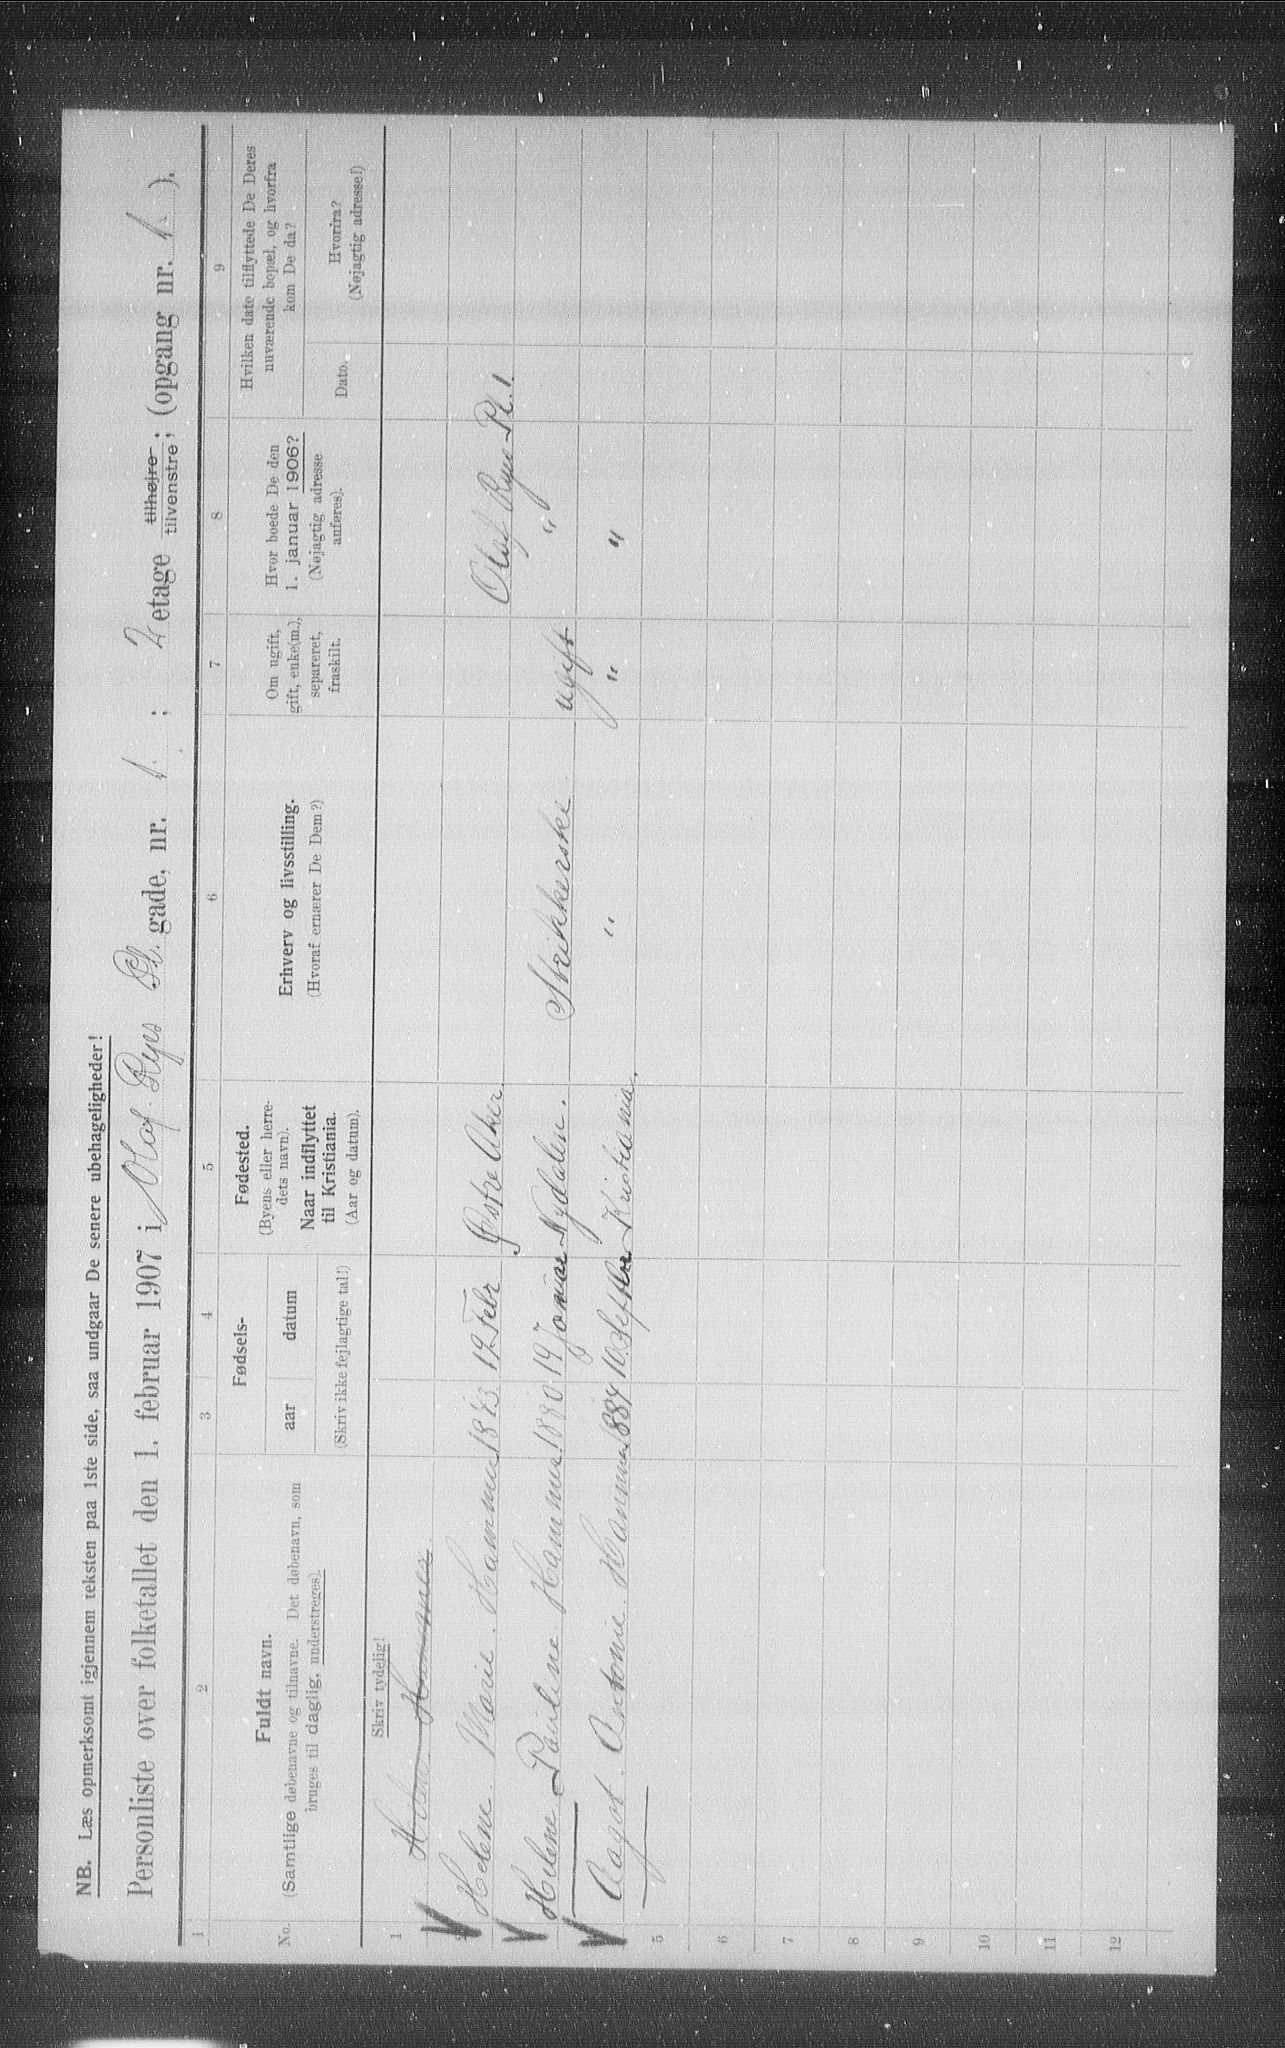 NB. Læs opmerksomt igjennem teksten paa 1ste side, saa undgaar De senere ubehageligheder!
Personliste over folketallet den 1. februar 1907 i Olaf Ryes Pl. gade, nr. 1. ; 2 etage tilhøjre tilvenstre; (opgang nr. 1. ).
1 2 3 4 5 6 7 8 9
No.
Fuldt navn.
(Samtlige døbenavne og tilnavne. Det døbenavn, som
bruges til daglig, understreges).
Fødsels-
aar datum
(Skriv ikke fejlagtige tal!)
Fødested.
(Byens eller herre-
dets navn).
Naar indflyttet
til Kristiania.
(Aar og datum).
Erhverv og livsstilling.
(Hvoraf ernærer De Dem?)
Om ugift,
gift, enke(m.),
separeret,
fraskilt.
Hvor boede De den
1. januar 1906?
(Nøjagtig adresse
anføres).
Hvilken dato tilflyttede De Deres
nuværende bopæl, og hvorfra
kom De da?
Dato.
Hvorfra?
(Nøjagtig adresse!)
Skriv tydelig!
1
Helene Marie Hammer 12 Febr Østre Aker Olaf Ryes Pl. 1.
Helene Pauline Hammer 1880 19 Januar Nydalen. Strikkerske ugift "
Aagot Antonie Hammer 1884 10 Septbr Kristiania. " " "
5
6
7
8
9
10
11
12